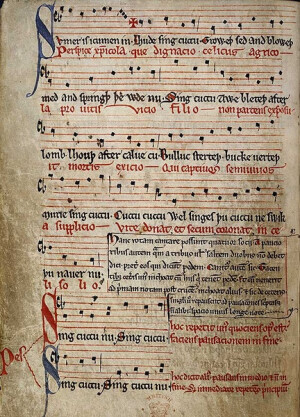 Sumer is icumen in· Lhude sing cuccu· Groweþ sed and bloweþ
Perspice xp̄icola que dignacio celicus agrico
med and springþ þe wde nu· Sing cuccu Awe bleteþ after
la pro uitis vicio filio non parcens exposu
lomb lhouþ after calue cu· Bulluc sterteþ bucke uerteþ
it mortis exicio Qui captiuos semiuiuos
murie sing cuccu· Cuccu cuccu Wel singes þu cuccu ne swik
a supplicio Vite donat et secum coronat in ce
þu nauer nu·
li solio·
Hanc rotam cantare possunt quatuor socii· A paucio
ribus autem quam a tribus uel saltem duobus non debet
dici preter eos qui dicunt pedem· Canitur autem sic· Tacen
tibus ceteris unus inchoat cum hiis qui tenent pedem· Et cum uenerit
ad primam notam post crucem· inchoat alius· et sic de ceteris
singuli uero repausent ad pausaciones scriptas
et non alibi spacio unius longe note·
Pes
Sing cuccu nu· Sing cuccu·
hoc repetit unus quociens opus est
faciens pausacionem in fine·
Sing cuccu· Sing cuccu nu
hoc dicit alius pausans in medio et non in
fine· Set immediate repetens principium